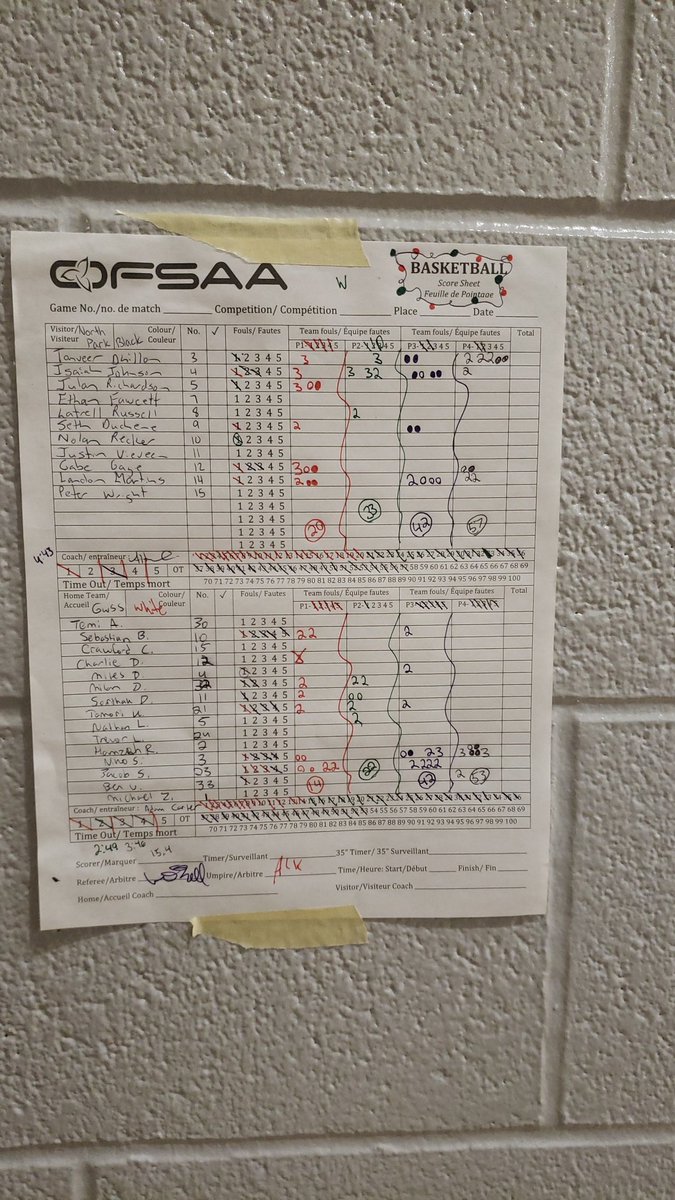 OFSAA
W
BASKETBALL
Score Sheet
Feuille de Pointage
Game No./no. de match Competition/ Compétition Place Date
Visitor/ Visiteur North Park Black Colour/ Couleur No. ✓ Fouls/ Fautes Team fouls/ Équipe fautes Team fouls/ Équipe fautes Total
P1- P2- P3- P4-
Janveer Dhillon 3 1 2 3 4 5 3 3 2 2200
Isaiah Johnson 4 1 2 3 4 5 3 3 32 2
Julan Richardson 5 1 2 3 4 5 300
Ethan Fawcett 7 1 2 3 4 5
Latrell Russell 8 1 2 3 4 5 2
Seth Duchene 9 1 2 3 4 5 2
Nolan Recker 10 1 2 3 4 5
Justin 11 1 2 3 4 5
Gabe Gage 12 1 2 3 4 5 300
Landon Martins 14 1 2 3 4 5 200 2000 22
Peter Wright 15 1 2 3 4 5
1 2 3 4 5
1 2 3 4 5 33
1 2 3 4 5 20 42 57
1 2 3 4 5
4:43
Coach/ entraîneur
1 2 3 4 5 OT 58 59 60 61 62 63 64 65 66 67 68 69
Time Out/ Temps mort 70 71 72 73 74 75 76 77 78 79 80 81 82 83 84 85 86 87 88 89 90 91 92 93 94 95 96 97 98 99 100
Home Team/ Accueil GWSS White Colour/ Couleur No. ✓ Fouls/ Fautes Team fouls/ Équipe fautes Team fouls/ Équipe fautes Total
P1- P2- P3- P4-
Temi A. 30 1 2 3 4 5
Sebastian B. 10 1 2 3 4 5 22 2
Crawford C. 15 1 2 3 4 5
Charlie D. 12 1 2 3 4 5
Miles D 4 1 2 3 4 5 2
Milan D. 32 1 2 3 4 5 2 22
11 1 2 3 4 5 2 00
21 1 2 3 4 5 2 2 2
Nathan L. 5 1 2 3 4 5 2
Trevor L. 24 1 2 3 4 5
Hamzah R. 2 1 2 3 4 5
Nino S. 3 1 2 3 4 5 00 23
Jacob S. 23 1 2 3 4 5 22 2222
Ben V. 33 1 2 3 4 5 14 42 2 53
Michael Z. 1 2 3 4 5
Coach/ entraîneur : Adam
1 2 3 4 5 OT 54 55 56 57 58 59 60 61 62 63 64 65 66 67 68 69
Time Out/ Temps mort 70 71 72 73 74 75 76 77 78 79 80 81 82 83 84 85 86 87 88 89 90 91 92 93 94 95 96 97 98 99 100
2:49 3:46 15.4
Scorer/Marquer Timer/Surveillant 35" Timer/ 35" Surveillant
Referee/Arbitre Umpire/Arbitre Time/Heure: Start/Début Finish/ Fin
Home/Accueil Coach Visitor/Visiteur Coach